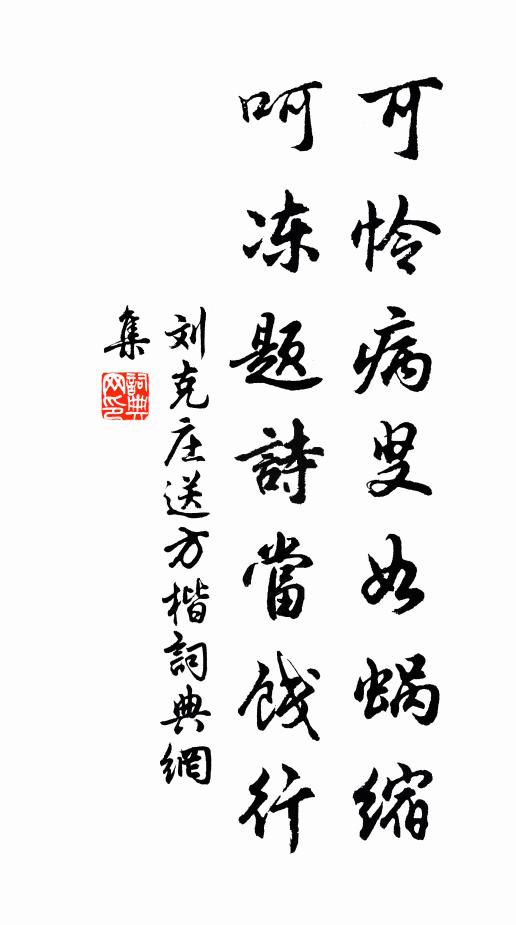 可怜病叟如蜗缩
呵冻题詩當餞行
刘克庄送方楷詞典網
集
詞典网印